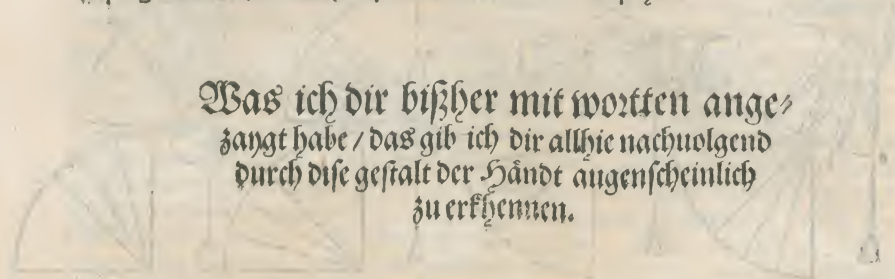 Was ich dir bißher mit wortten ange⸗
zaygt habe / das gib ich dir allhie nachuolgend
durch dise gestalt der Händt augenscheinlich
zu erkhennen.